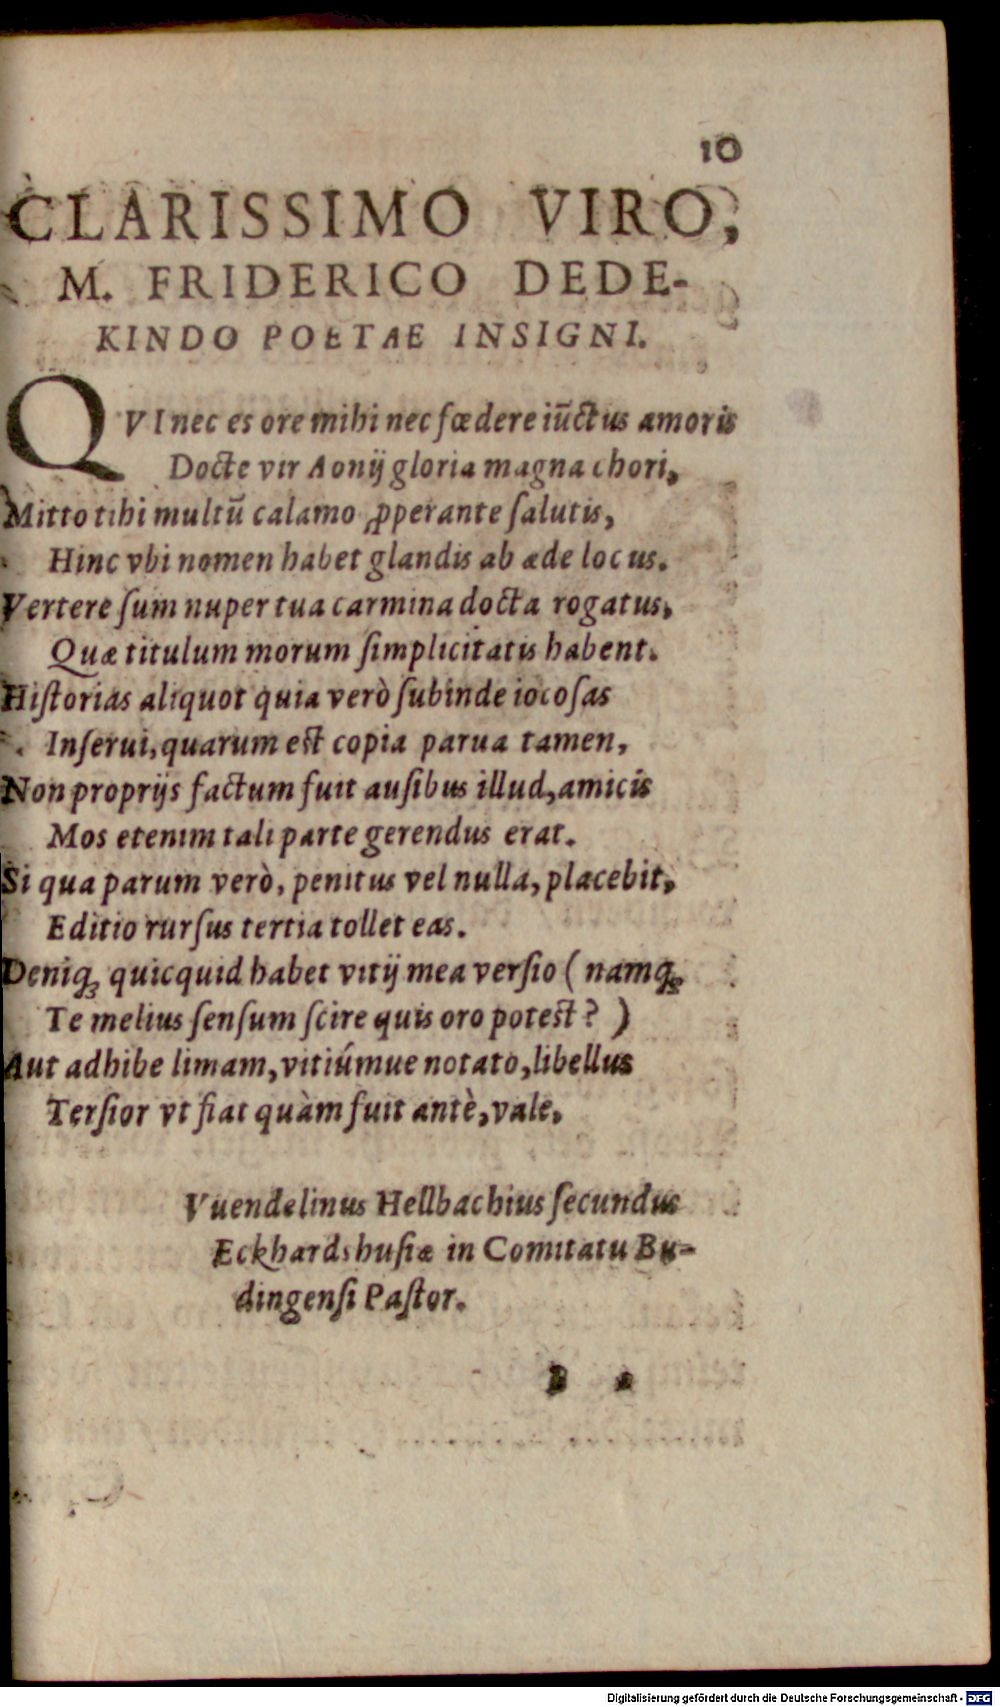 10
CLARISSIMO VIRO,
M. FRIDERICO DEDE-
KINDO POETAE INSIGNI.
QVI nec es ore mihi nec fœdere iūctus amoris
Docte vir Aonij gloria magna chori,
Mitto tibi multū calamo ꝓperante ſalutis,
Hinc vbi nomen habet glandis ab æde locus.
Vertere ſum nuper tua carmina docta rogatus,
Quæ titulum morum ſimplicitatis habent.
Hiſtorias aliquot quia verò ſubinde iocoſas
Inſerui, quarum eſt copia parua tamen,
Non proprijs factum fuit auſibus illud, amicis
Mos etenim tali parte gerendus erat.
Si qua parum verò, penitus vel nulla, placebit,
Editio rurſus tertia tollet eas.
Deniq; quicquid habet vitij mea verſio (namq;
Te melius ſenſum ſcire quis oro poteſt? )
Aut adhibe limam, vitiúmue notato, libellus
Terſior vt fiat quàm fuit antè, vale,
Vuendelinus Hellbachius ſecundus
Eckhardshuſiæ in Comitatu Bu-
dingenſi Paſtor.
B
Digitalisierung gefördert durch die Deutsche Forschungsgemeinschaft - DFG